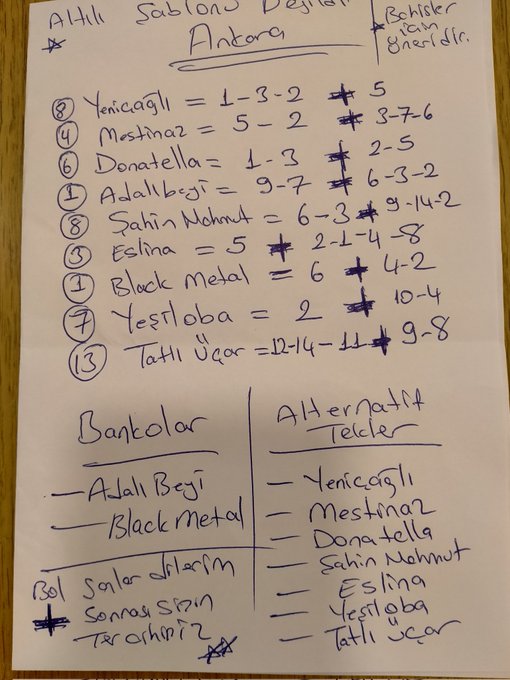 Altılı Şablonu Değildir
Ankara
Bahisler
için
öneridir.
8 Yeniçağlı = 1-3-2 + 5
4 Mestinaz = 5-2 + 3-7-6
6 Donatella = 1-3 + 2-5
1 Adalıbeyi = 9-7 + 6-3-2
8 Şahin Mahmut = 6-3 + 9-14-2
3 Eslina = 5 + 2-1-4-8
1 Black Metal = 6 + 4-2
7 Yeşiloba = 2 + 10-4
13 Tatlı Üçar = 12-14-11 + 9-8
Bankolar
— Adalı Beyi
— Black Metal
Bol Şanslar dilerim
+ Sonrası Sizin
Tercihiniz
Alternatif
Tekler
— Yeniçağlı
— Mestinaz
— Donatella
— Şahin Mahmut
— Eslina
— Yeşiloba
— Tatlı Üçar